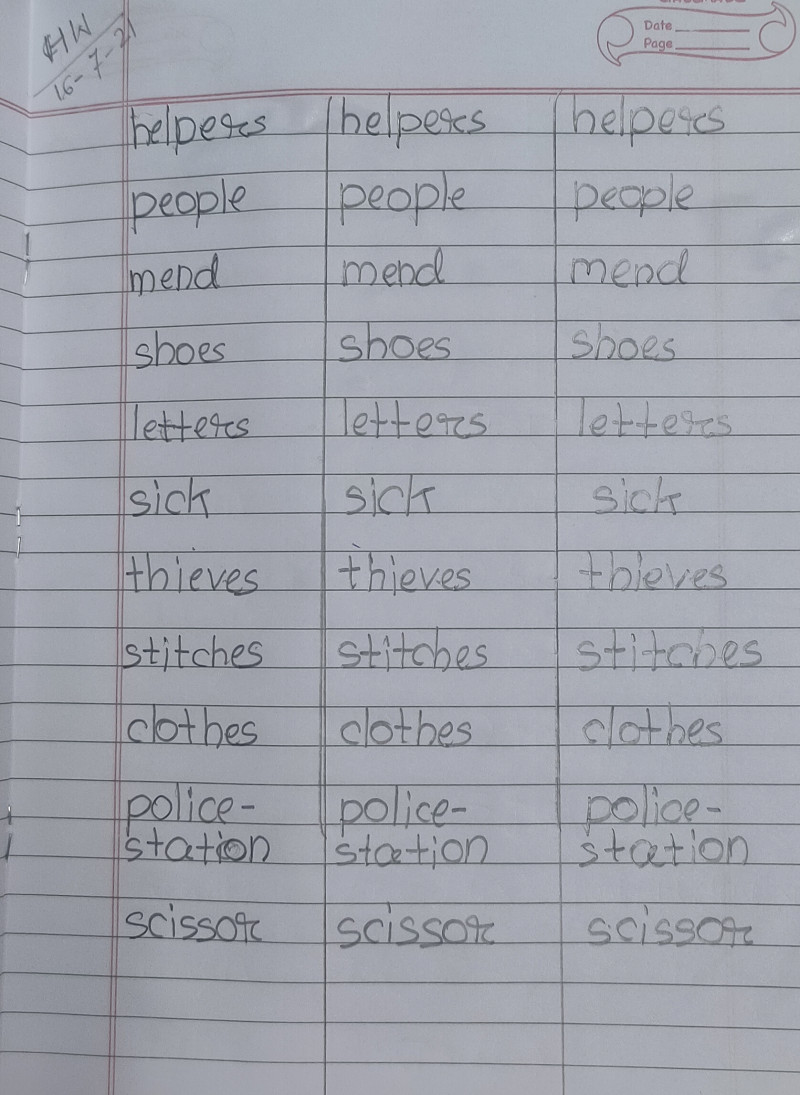 HW
16-7-21
Date
Page
helpers helpers helpers
people people people
mend mend mend
shoes shoes shoes
letters letters letters
sick sick sick
thieves thieves thieves
stitches stitches stitches
clothes clothes clothes
police- police- police-
station station station
scissor scissor scissor